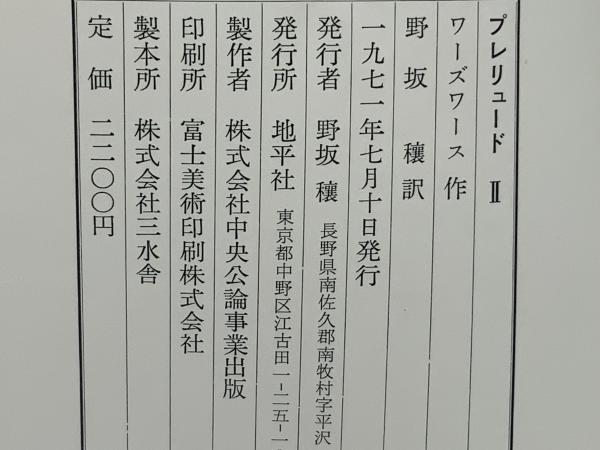 プレリュード Ⅱ
ワーズワース 作
野坂 穣 訳
一九七一年七月十日発行
発行者 野坂 穣 長野県南佐久郡南牧村字平沢
発行所 地平社 東京都中野区江古田一-二五-一
製作者 株式会社中央公論事業出版
印刷所 富士美術印刷株式会社
製本所 株式会社三水舎
定価 二二〇〇円